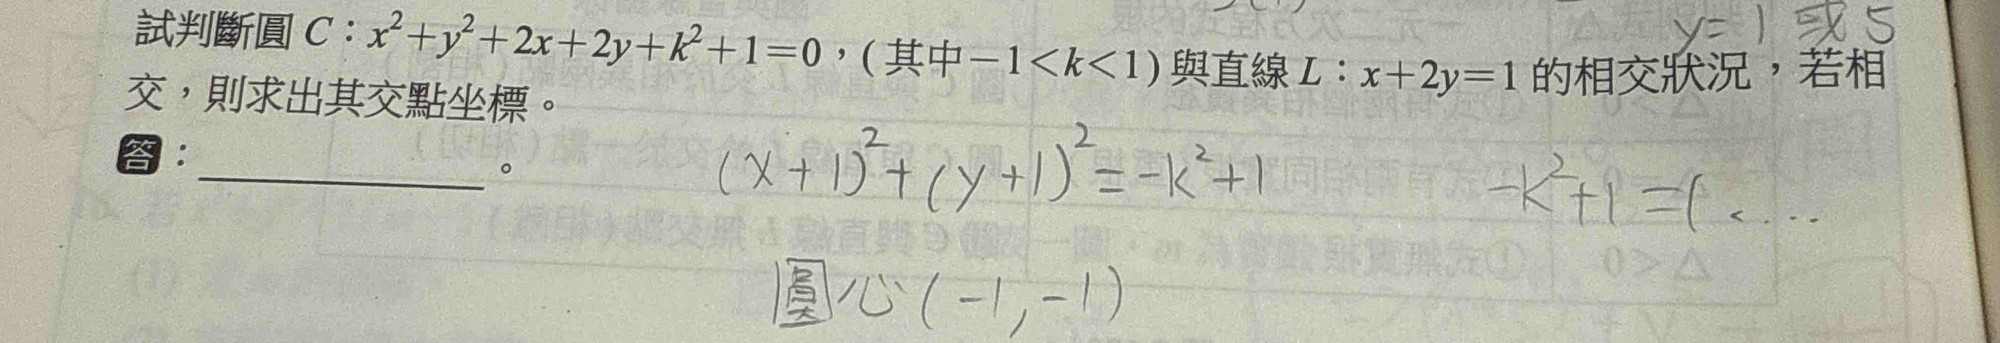 y=1 或 5
試判斷圓 C：x²+y²+2x+2y+k²+1=0，(其中−1<k<1)與直線 L：x+2y=1 的相交狀況，若相
交，則求出其交點坐標。
答：＿＿＿＿＿＿。
(x+1)²+(y+1)²=-k²+1
-k²+1=(<....
圓心(-1,-1)